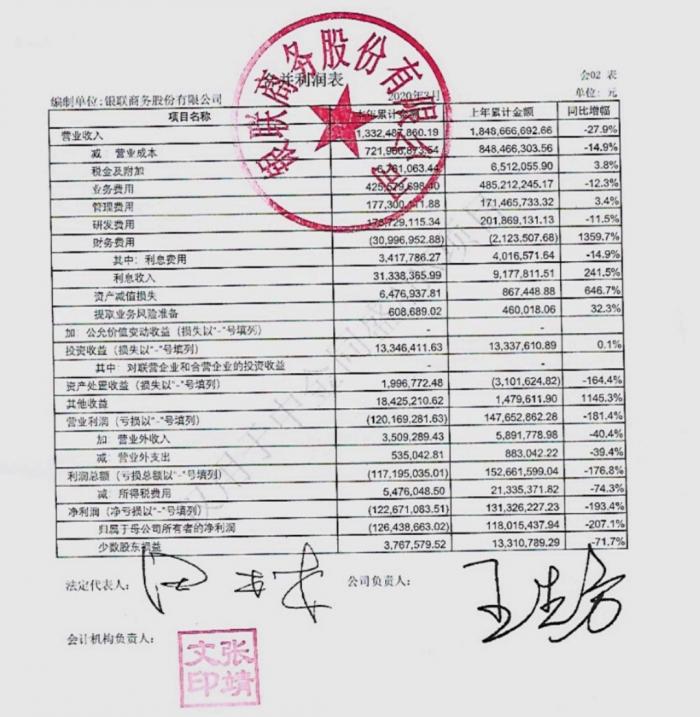 银联商务股份有限公司
合并利润表
会02 表
编制单位:银联商务股份有限公司 2020年3月 单位: 元
项目名称 本年累计金额 上年累计金额 同比增幅
营业收入 1,332,487,860.19 1,848,666,692.66 -27.9%
减 营业成本 848,466,303.56 -14.9%
税金及附加 6,512,055.90 3.8%
业务费用 485,212,245.17 -12.3%
管理费用 171,465,733.32 3.4%
研发费用 201,869,131.13 -11.5%
财务费用 (30,996,952.88) (2,123,507.68) 1359.7%
其中: 利息费用 3,417,786.27 4,016,571.64 -14.9%
利息收入 31,338,365.99 9,177,811.51 241.5%
资产减值损失 6,476,937.81 867,448.88 646.7%
提取业务风险准备 608,689.02 460,018.06 32.3%
加: 公允价值变动收益 (损失以"-"号填列) - -
投资收益 (损失以"-"号填列) 13,346,411.63 13,337,610.89 0.1%
其中: 对联营企业和合营企业的投资收益 - -
资产处置收益 (损失以"-"号填列) 1,996,772.48 (3,101,624.82) -164.4%
其他收益 18,425,210.62 1,479,611.90 1145.3%
营业利润 (亏损以"-"号填列) (120,169,281.63) 147,652,862.28 -181.4%
加: 营业外收入 3,509,289.43 5,891,778.98 -40.4%
减: 营业外支出 535,042.81 883,042.22 -39.4%
利润总额 (亏损总额以"-"号填列) (117,195,035.01) 152,661,599.04 -176.8%
减: 所得税费用 5,476,048.50 21,335,371.82 -74.3%
净利润 (净亏损以"-"号填列) (122,671,083.51) 131,326,227.23 -193.4%
归属于母公司所有者的净利润 (126,438,663.02) 118,015,437.94 -207.1%
少数股东损益 3,767,579.52 13,310,789.29 -71.7%
法定代表人: 公司负责人:
会计机构负责人: 张靖文印